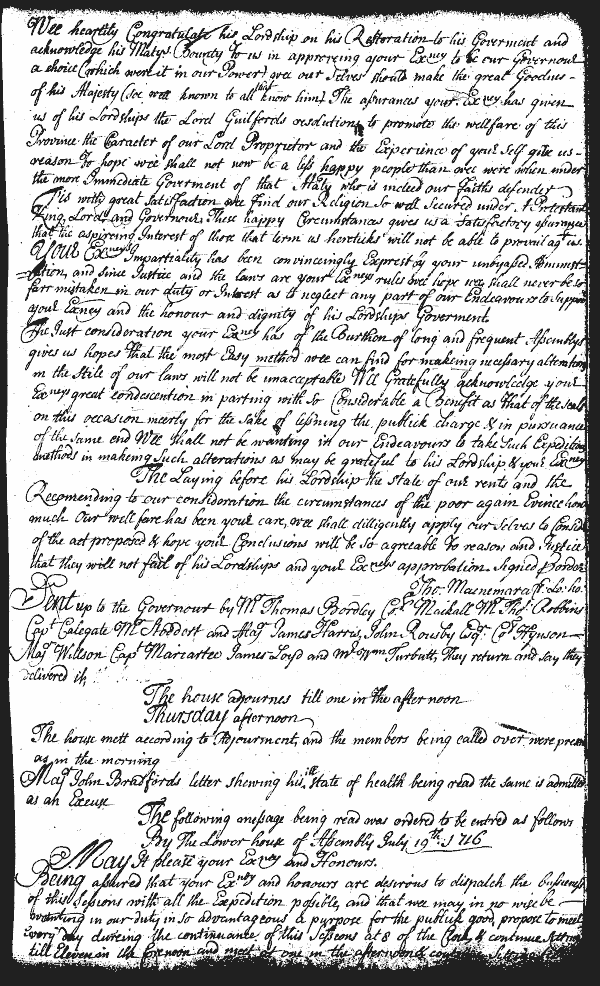 Wee heartily Congratulate his Lordship on his Restoration to his Goverment and
acknowledge his Matys Bounty to us in approveing your Excncy to be our Governour
a choice (which were it in our Power) wee our Selves should make the great Goodnes-
of his Majesty (soe well known to all that know him) The assurances your Excncy has given
us of his Lordships the Lord Guilfords resolutions to promote the wellfare of this
Province the Caracter of our Lord Proprietor and the Experience of your Self give us-
reason To hope wee shall not now be a less happy people than wee were when under
the more Immediate Goverment of that Majty who is indeed our Faiths defender
Tis with great Satisfaction wee find our Religion So well Secured under A Protestant
King, Lord and Governour, These happy Circumstances gives us a Satisfactory assurance
that the aspireing Interest of those that term us hereticks will not be able to prevail agt us
Your Excncys Impartiality has been convincingly Exprest by your unbyassed Administ-
ration, and since Justice and the laws are your Excncys rules wee hope wee shall never be so
farr mistaken in our duty or Interest as to neglect any part of our Endeavours to Support
your Excncy and the honour and dignity of his Lordships Goverment
The Just consideration your Excncy has of the Burthen of long and frequent Assemblys
gives us hopes That the most Easy method wee can find for making necessary alterations
in the Stile of our laws will not be unacceptable Wee Gratefully acknowledge your
Excncys great condescention in parting with so Considerable a Benefit as that of the seals
on this occasion meerly for the Sake of lessning the publick charge & in pursuance
of the same end Wee shall not be wanting in our Endeavours to take Such Expeditious
methods in making Such alterations as may be grateful to his Lordship & your Excncy
The Laying before his Lordship the State of our rents and the
Recomending to our consideration the circumstances of the poor again Evince how
much Our wellfare has been your care, wee shall dilligently apply our Selves to Consid
of the act proposed & hope your Conclusions will be so agreable To reason and Justice
that they will not fail of his Lordships and your Excncys approbation Signed p order
Tho: Macnemara Cl: Lo: ho:
Sent up to the Governour by Mr Thomas Bordley Coll Mackall Mr Tho: Robbins
Capt Calegate Mr Stoddert and Maj James Harris, John Rousby Esqr Coll Hynson
Maj Wilson Capt Mariartee James Loyd and Mr Wm Turbutt, They return and say they
delivered it,
The house adjournes till one in the afternoon
Thursday afternoon
The house mett according to Adjourment, and the members being called over were present
as in the morning
Maj John Bradfords letter shewing his ill State of health being read the same is admitted
as an Excuse
The following message being read was ordered to be entred as follows
By The Lower house of Assembly July 19th 1716
May It please your Excncy and Honours.
Being assured that your Excncy and honours are desirous to dispatch the business
of this Sessions with all the Expedition possible, and that wee may in no wise be
wanting in our duty in so advantageous a purpose for the publick good, propose to meet
Every day dureing the continuance of this Sessions at 8 of the Clock & continue
till Eleven in the forenoon and meet at one in the afternoon &